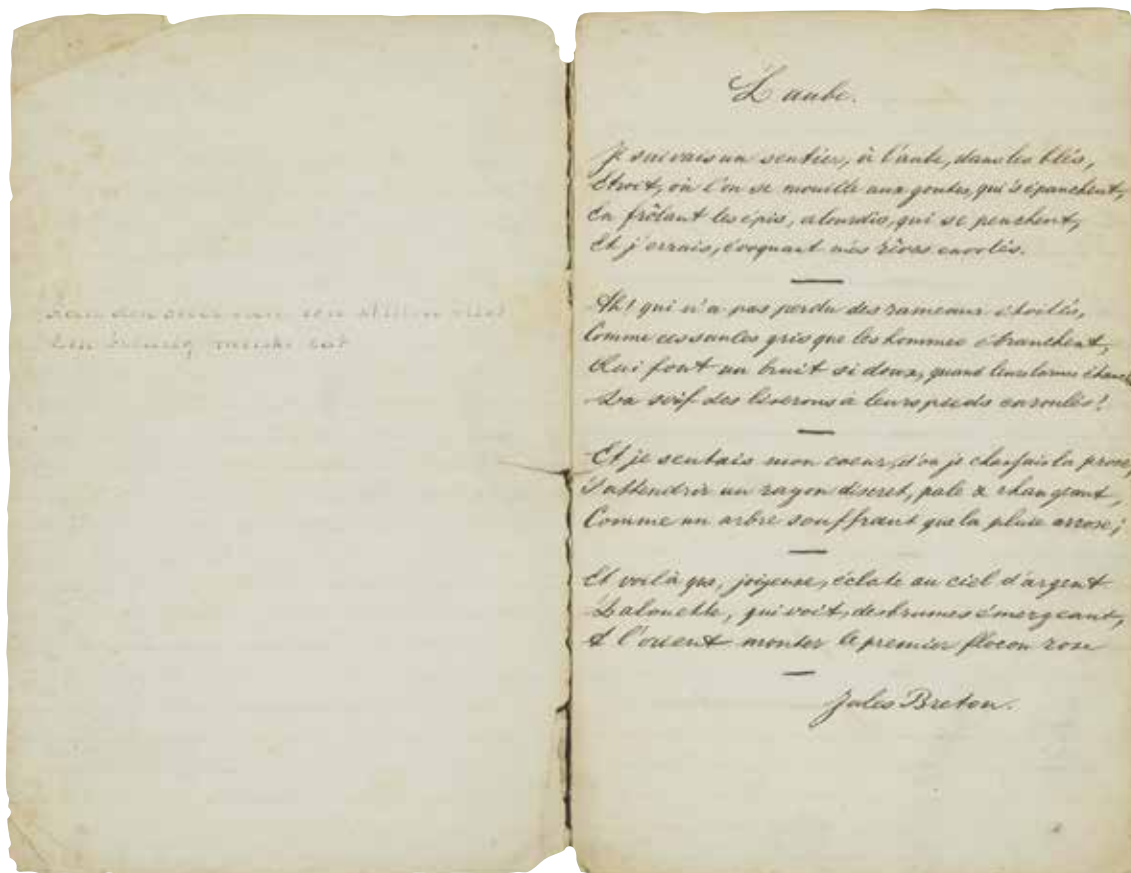 L'aube.
Je suivais un sentier, à l'aube, dans les blés,
Etroit, où l'on se mouille aux goutes, qui s'épanchent,
En frôlant les épis, alourdis, qui se penchent,
Et j'errais, évoquant mes rêves envolés.
Ah! qui n'a pas perdu des rameaux étoilés,
Comme ces saules gris que les hommes ébranchent,
Qui font un bruit si doux, quand leurs larmes
La soif des liserons à leurs pieds enroulés!
Et je sentais mon coeur, d'où je chassais la prose,
S'attendrir un rayon discret, pale & changeant,
Comme un arbre souffrant que la pluie arrose;
Et voilà que, joyeuse, éclate au ciel d'argent
L'alouette, qui voit, des brumes émergeant,
A l'orient monter le premier flocon rose
Jules Breton.